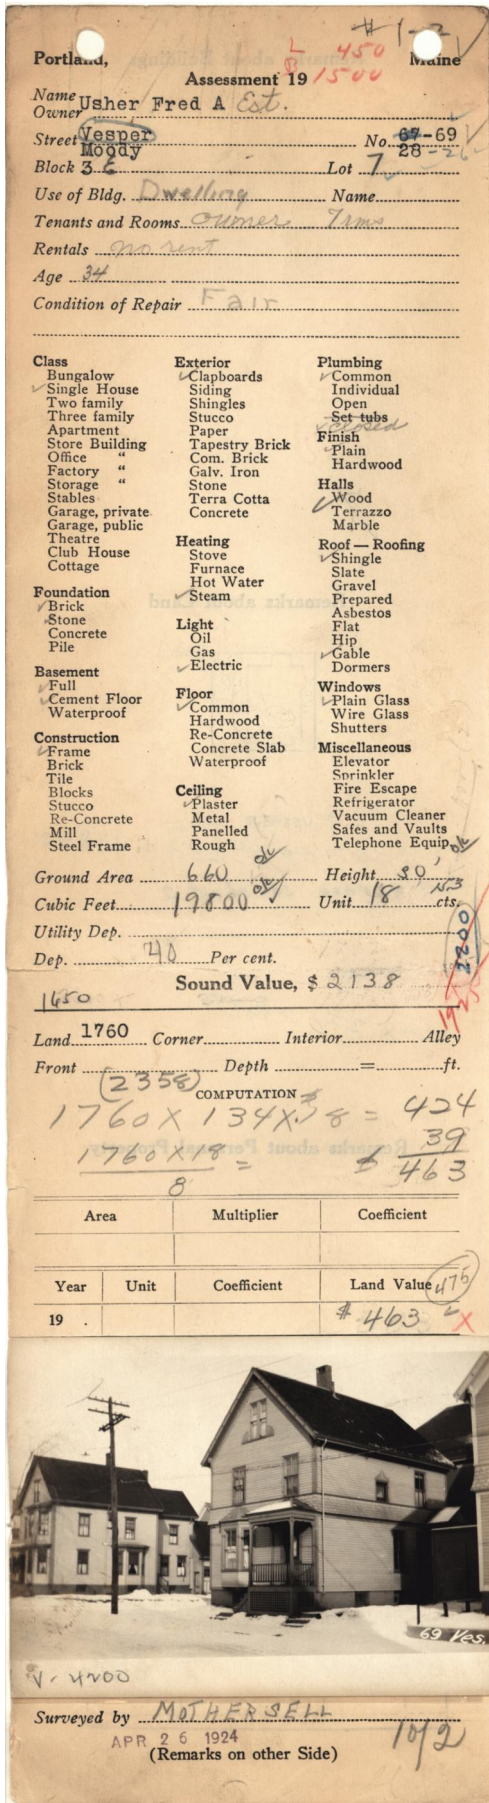 # 1-2
Portland, Maine
L 450
B 1500
Assessment 19
Name
Owner Usher Fred A Est.
Street Vesper No. 67-69
Moody 28-26
Block 3 E Lot 7
Use of Bldg. Dwelling Name
Tenants and Rooms owner 7 rms
Rentals no rent
Age 34
Condition of Repair Fair
Class
Bungalow
Single House
Two family
Three family
Apartment
Store Building
Office "
Factory "
Storage "
Stables
Garage, private
Garage, public
Theatre
Club House
Cottage
Foundation
Brick
Stone
Concrete
Pile
Basement
Full
Cement Floor
Waterproof
Construction
Frame
Brick
Tile
Blocks
Stucco
Re-Concrete
Mill
Steel Frame
Exterior
Clapboards
Siding
Shingles
Stucco
Paper
Tapestry Brick
Com. Brick
Galv. Iron
Stone
Terra Cotta
Concrete
Heating
Stove
Furnace
Hot Water
Steam
Light
Oil
Gas
Electric
Floor
Common
Hardwood
Re-Concrete
Concrete Slab
Waterproof
Ceiling
Plaster
Metal
Panelled
Rough
Plumbing
Common
Individual
Open
Set tubs
closed
Finish
Plain
Hardwood
Halls
Wood
Terrazzo
Marble
Roof — Roofing
Shingle
Slate
Gravel
Prepared
Asbestos
Flat
Hip
Gable
Dormers
Windows
Plain Glass
Wire Glass
Shutters
Miscellaneous
Elevator
Sprinkler
Fire Escape
Refrigerator
Vacuum Cleaner
Safes and Vaults
Telephone Equip.
Ground Area 660 ok Height 30' ok
Cubic Feet 19800 ok Unit 18 cts.
Utility Dep.
Dep. 40 Per cent.
2200
Sound Value, $ 2138
1650
Land 1760 Corner Interior Alley
Front Depth = ft.
(2358)
COMPUTATION
1760 X 134 X .18 = 424
39
1760 X 18 = $ 463
8
Area Multiplier Coefficient
Year Unit Coefficient Land Value 475
19 . $ 463 X
69 Ves.
V-4200
Surveyed by MOTHERSELL
APR 26 1924
(Remarks on other Side)